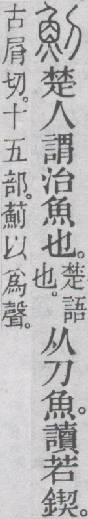 魝楚人謂治魚也。楚語也。从刀魚。讀若鍥。
古屑切。十五部。薊以為聲。